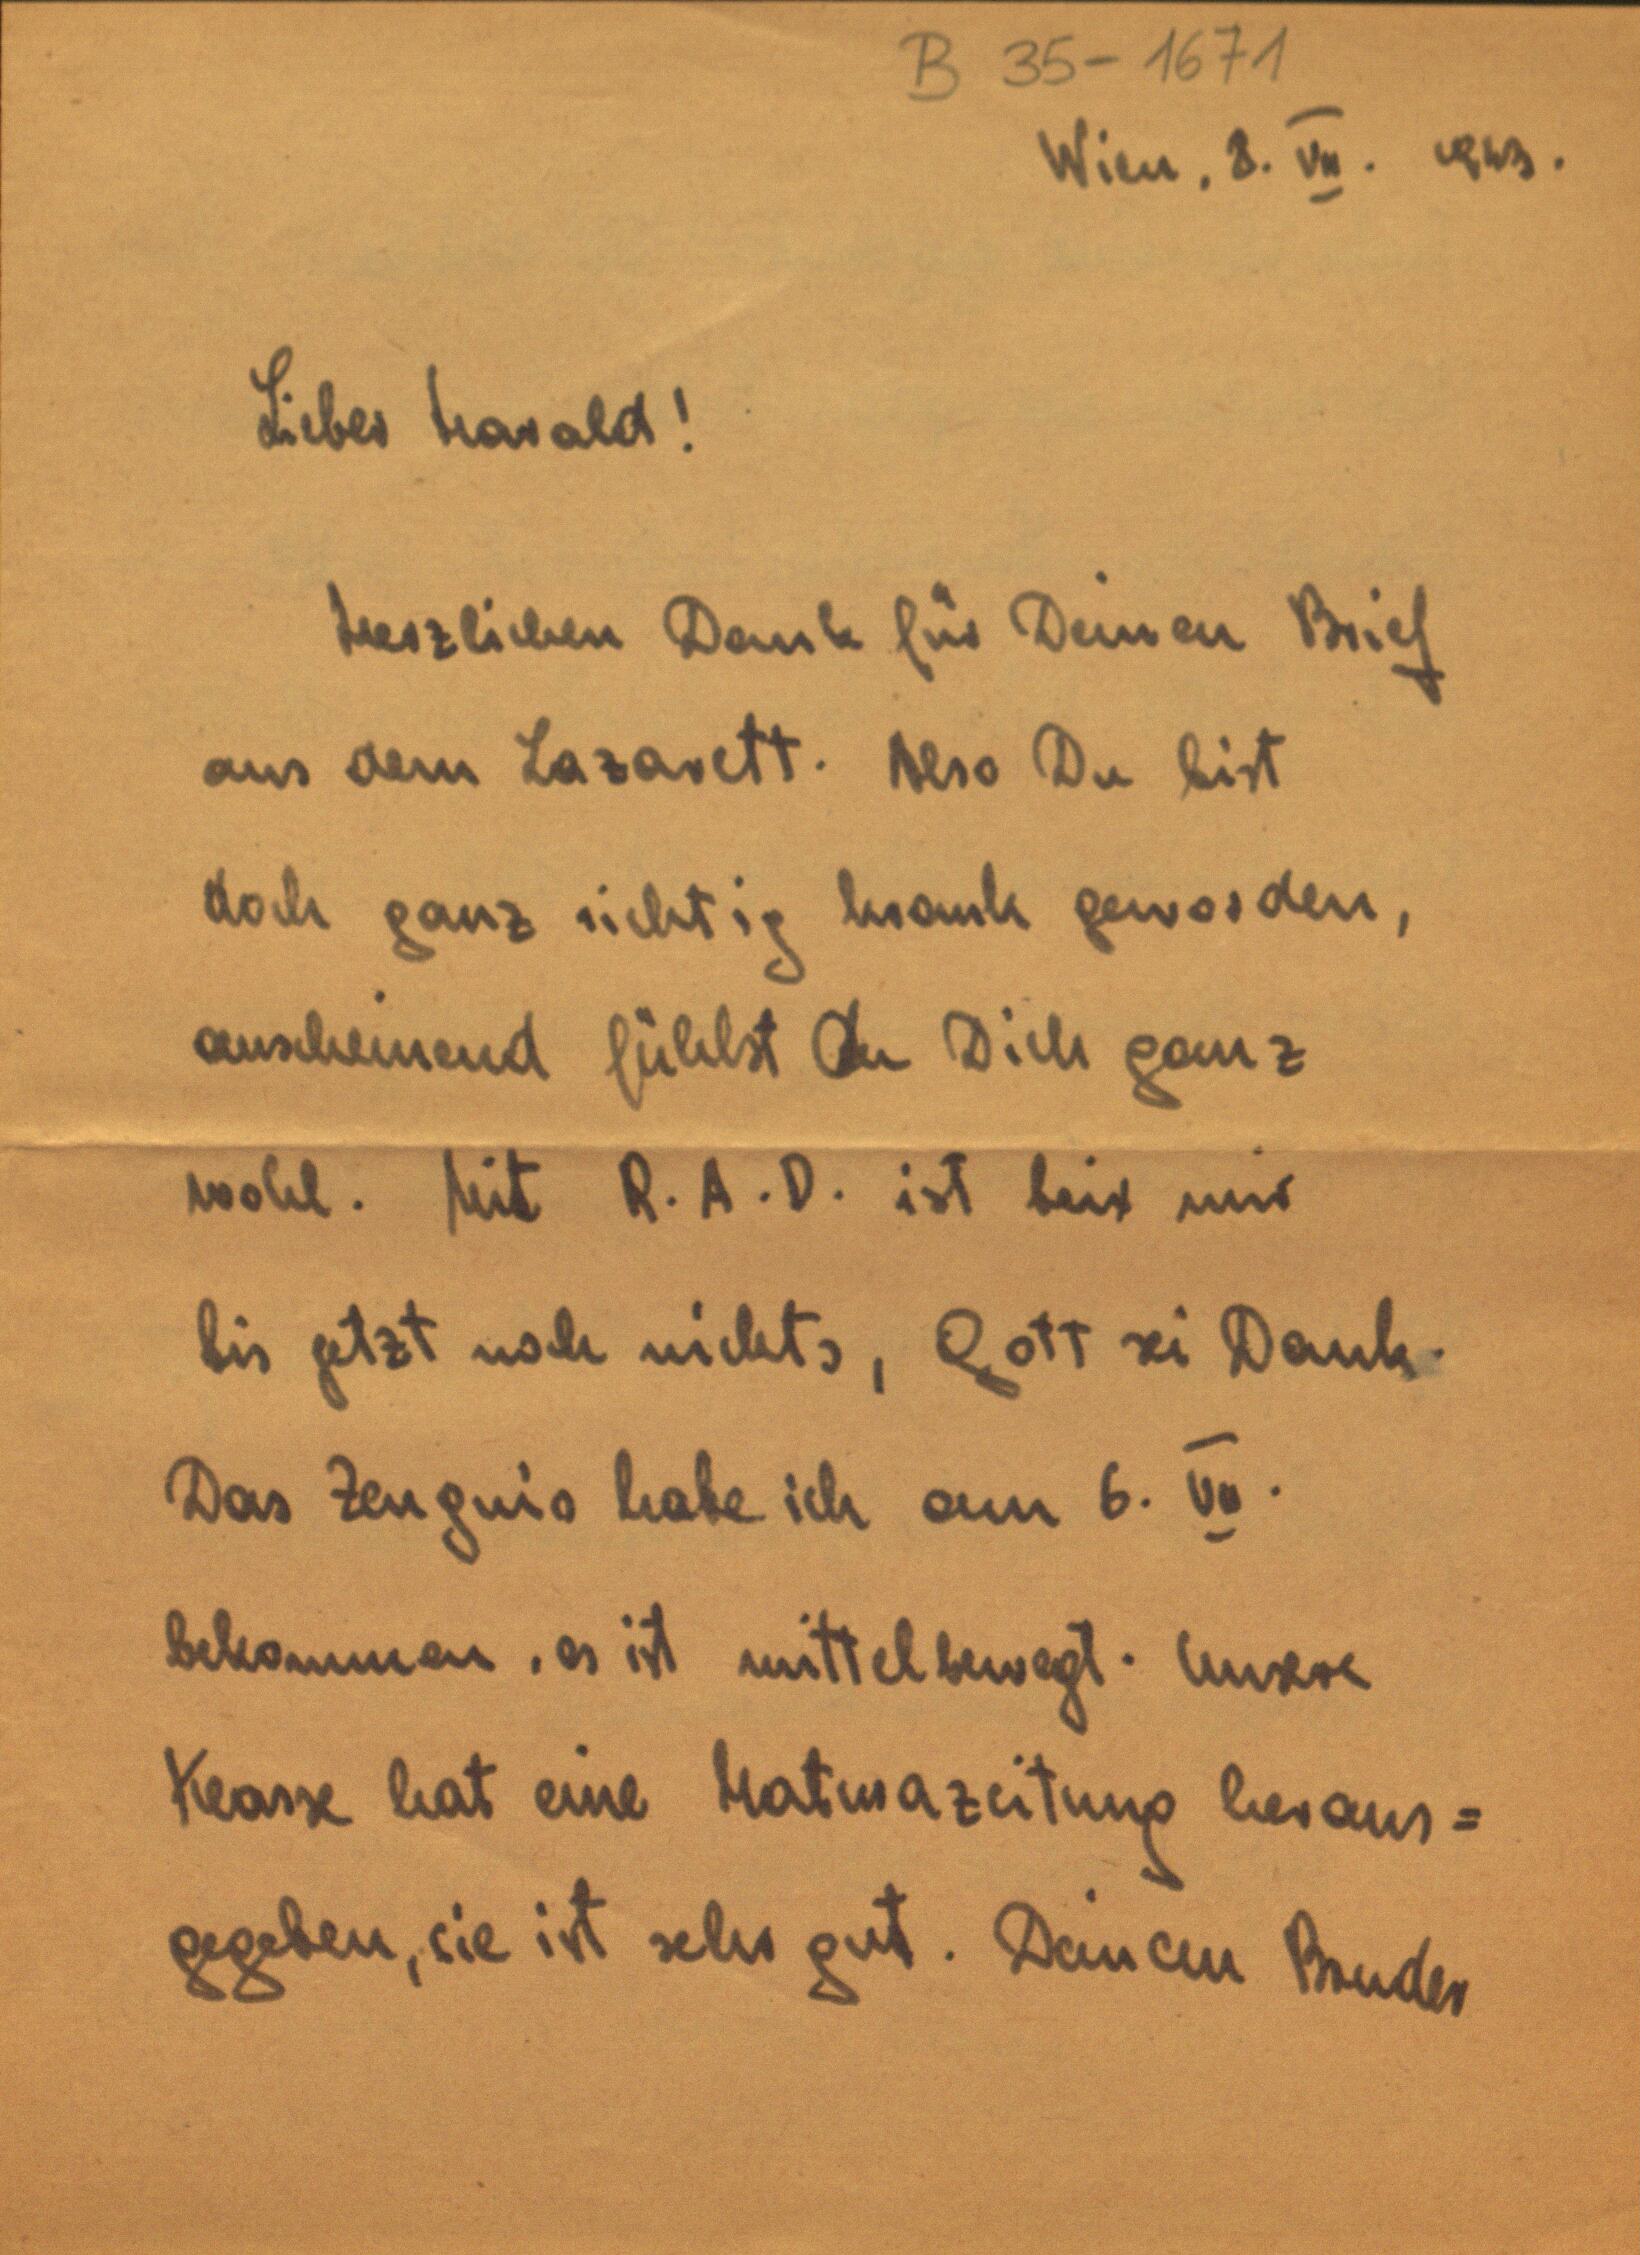 B 35-1671
Wien, 8. VII. 1943.
Lieber Harald!
Herzlichen Dank für Deinen Brief
aus dem Lazarett. Also Du bist
doch ganz richtig krank geworden,
anscheinend fühlst Du Dich ganz
wohl. Mit R.A.D. ist bei mir
bis jetzt noch nichts, Gott sei Dank.
Das Zeugnis habe ich am 6. VII.
bekommen, es ist mittelbewegt. Unsere
Klasse hat eine Maturazeitung heraus=
gegeben, sie ist sehr gut. Deinen Bruder